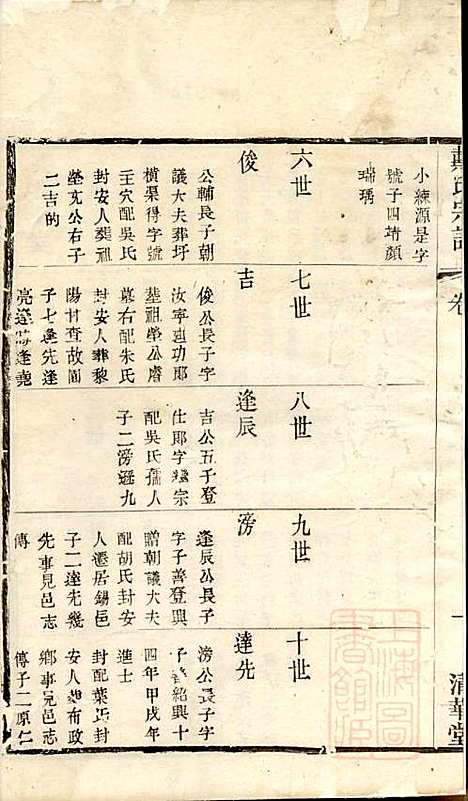 戴氏宗譜
卷
一
清華堂
小練源是字
號子四靖顏
瑞瑀
六世
俊
公輔長子朝
議大夫葬圩
橫渠得字號
王穴配吳氏
封安人葬祖
塋穴公右子
二吉的
七世
吉
俊公長子字
汝寧迪功郎
塟祖塋公膺
墓右配朱氏
封安人葬黎
陽甘查故園
子七逢先逢
亮逢時逢堯
八世
逢辰
吉公五子登
仕郎字繼宗
配吳氏孺人
子二滂遜九
九世
滂
逢辰公長子
字子善登興
贈朝議大夫
配胡氏封安
人遷居錫邑
子二達先幾
先事見邑志
傳
十世
達先
滂公長子字
子紹興十
四年甲戌年
進士
封配葉氏封
安人葬布政
鄉事見邑志
傳子二原仁
上海圖書館藏